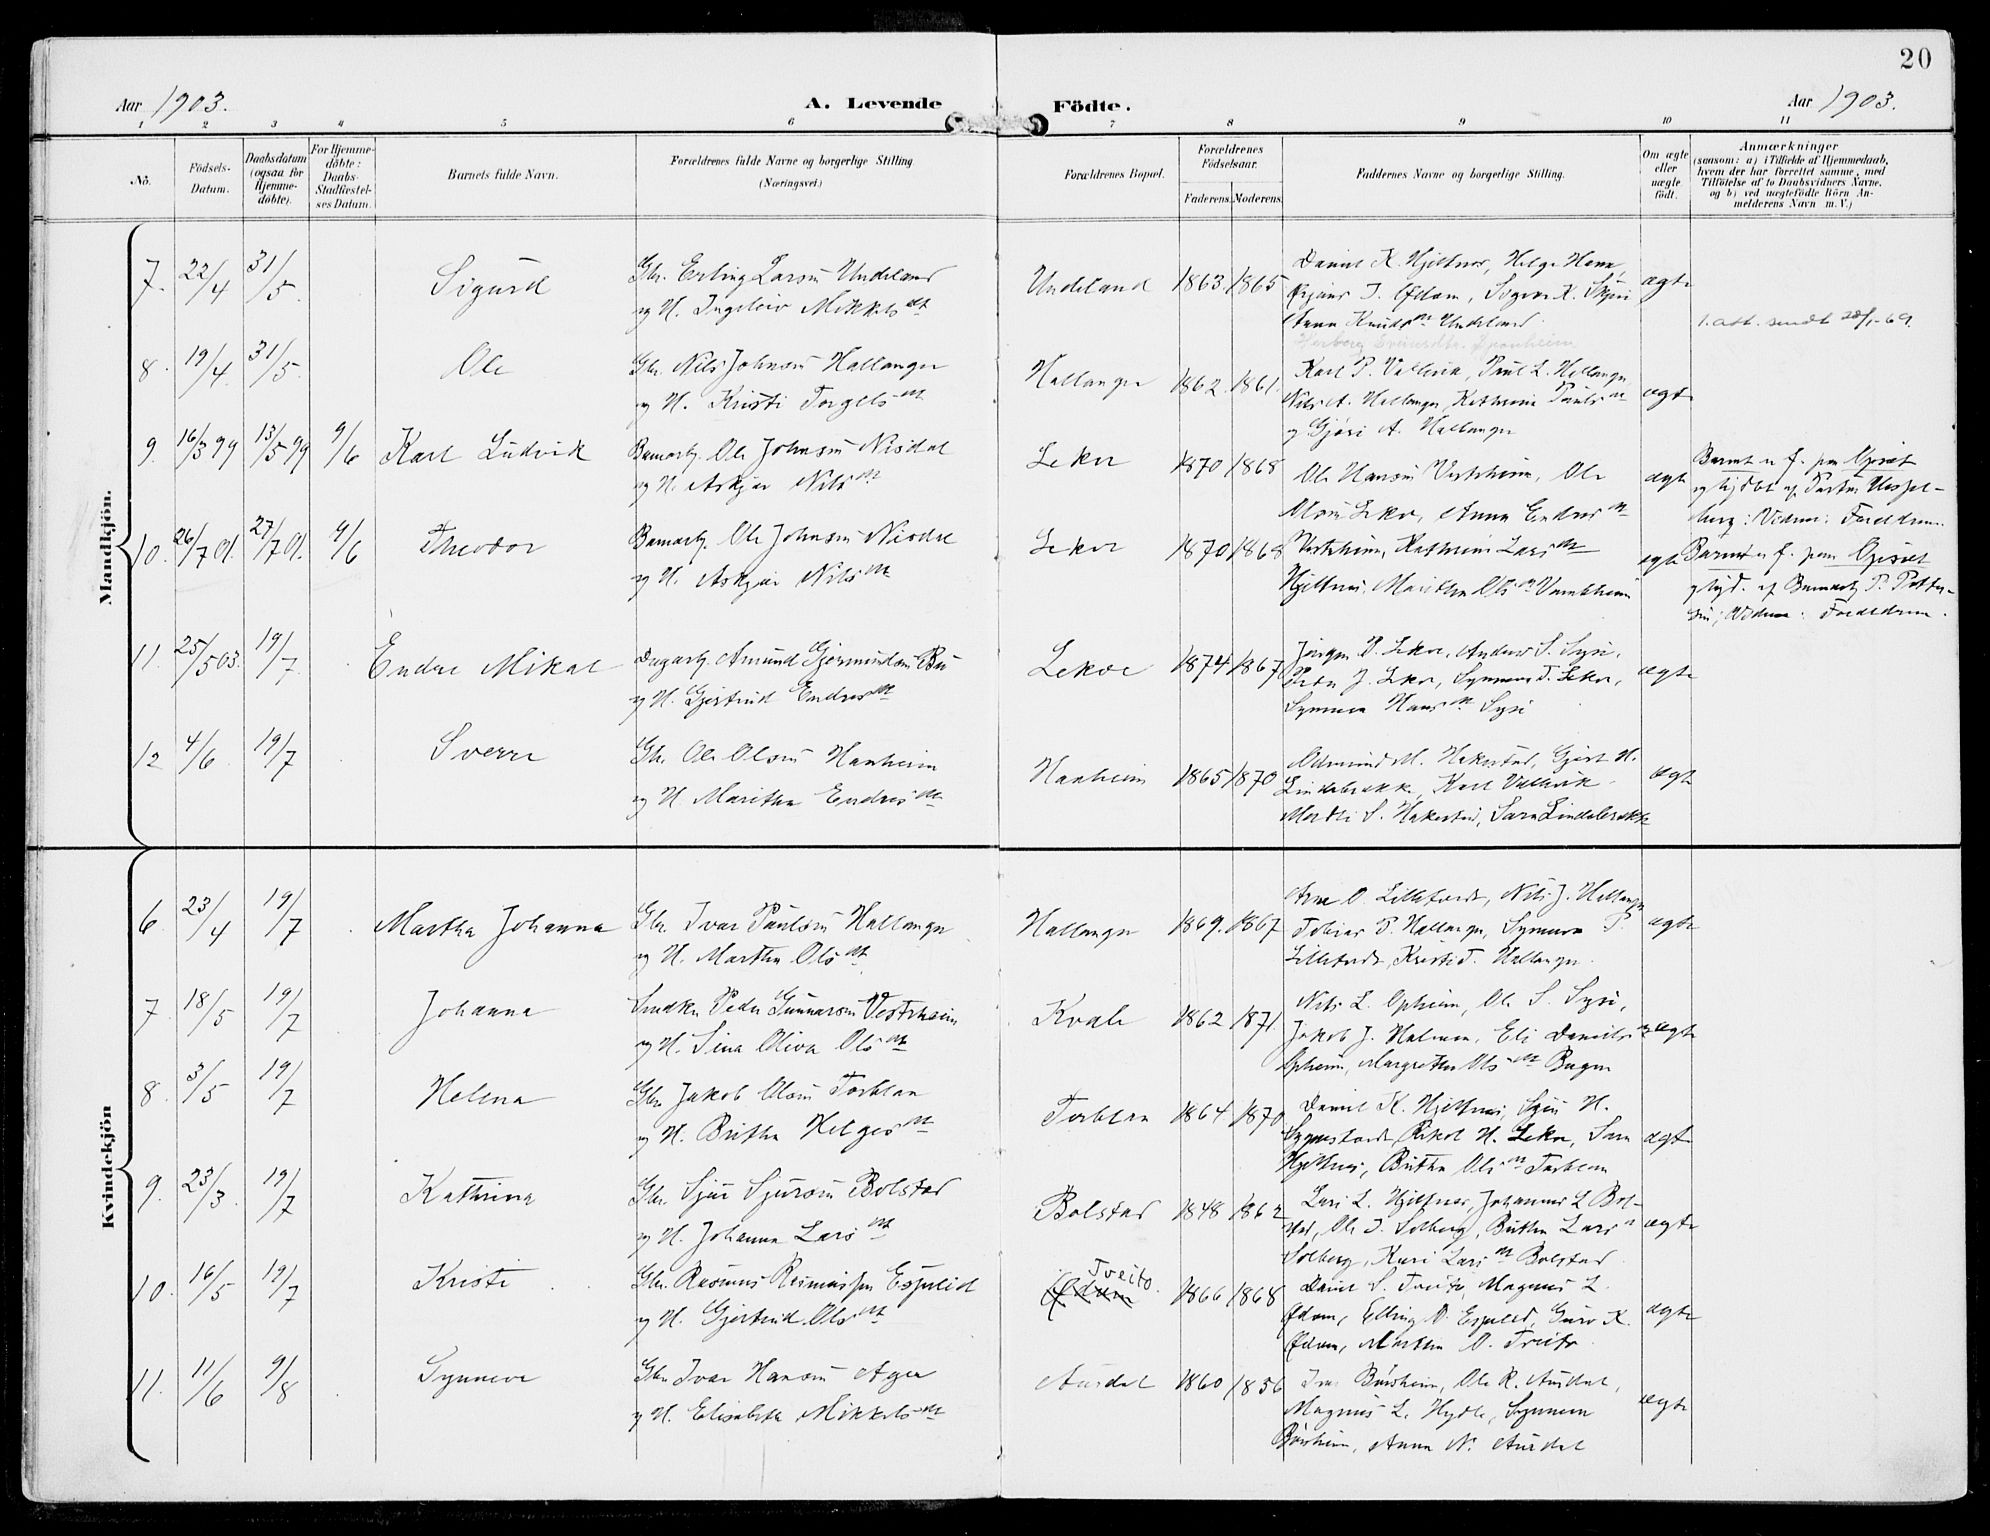 20
Aar 1903.
A. Levende Födte.
Aar 1903.
1 2 3 4 5 6 7 8 9 10 11
No.
Födsels-Datum.
Daabsdatum (ogsaa for Hjemme-döbte).
For Hjemme-döbte: Daabs-Stadfæstel-ses Datum.
Barnets fulde Navn.
Forældrenes fulde Navne og borgerlige Stilling (Næringsvei.)
Forældrenes Bopæl.
Forældrenes Födselsaar.
Faderens. Moderens.
Faddernes Navne og borgerlige Stilling.
Om ægte eller uægte födt.
Anmærkninger
(saasom: a) i Tilfælde af Hjemmedaab,
hvem der har forrettet samme, med
Tilföielse af to Daabsvidners Navne.
og b) ved uægtefödte Börn An-
melderens Navn m. V.)
Mandkjön.
7. 22/4 31/5 Sigurd Gbr. Erling Larsen Undeland
og H. Ingeleiv Mikkelsdt
Undeland 1863 1865
Daniel K. Hjeltnes, Helge
Anna Knudsdt Undeland
ægte
1. att. sendt 28/1-69.
8. 19/4 31/5 Ole Gbr. Nils Johnsen Hallanger
og H. Kristi Torgelsdt
Hallanger 1862 1861
Karl P. Vallevik, Paul L. Hallanger
Nils A. Hallanger, Kathrina Paulsdt
og Gjøri A. Hallanger
ægte
9. 16/3 99 13/5 99 9/6 Karl Ludvik Ole Johnsen Nisdal
og H. Askjær Nilsdt
Lekve 1870 1868
Ole Hansen Vestrheim, Ole
Olsen Lekve, Anna Endresdt
ægte
Barnet er f. paa
10. 26/7 01. 27/7 01. 4/6 Theodor Ole Johnsen Nisdal
og H. Askjær Nilsdt
Lekve 1870 1868
Vestrheim, Kathrina Larsdt
Hjeltnes, Maritha Olsdt
ægte
Barnet er f. paa
11. 25/5 03. 19/7 Endre Mikal Dagarb. Amund Gjermundsen Bu
og H. Gjertrud Endresdt
Lekve 1874 1867
Jørgen P. Lekve, Anders S. Syse,
Peder J. Lekve, Synneva T. Lekve,
Synneva Hansdt Syse
ægte
12 4/6 19/7 Sverre Gbr. Ole Olsen Hanheim
og H. Maritha Endresdt
Hanheim 1865 1870
Odmund M. Hakestad, Gjert H.
Lindebrække, Karl Vallevik
S. Hakestad, Sara Lindebrække
ægte
Kvindekjön
6. 23/4 19/7 Martha Johanna Gbr. Ivar Paulsen Hallanger
og H. Martha Olsdt
Hallanger 1869. 1867
Arne O. Lilletvedt, Nils J. Hallanger
Tobias P. Hallanger, Synneva P.
Lilletvedt, Kristi T. Hallanger.
ægte
7. 18/5 19/7 Johanna Snedker Peder Gunnarsen Vestrheim
og H. Sina Oliva Olsdt
Kvale 1862 1871.
Nils L. Opheim, Ole S. Syse,
Jakob J. Halmen, Eli Danielsdt
Opheim, Margretha Olsdt
ægte
8. 3/5 19/7 Helena Gbr. Jakob Olsen Torblaa
og H. Britha Helgesdt
Torblaa 1864 1870
Daniel K. Hjeltnes, Sjur H.
H. Lekve, Sara
Hjeltnes, Britha Olsdt Torblaa
ægte
9. 23/3. 19/7 Kathrina Gbr. Sjur Sjursen Bolstad
og H. Johanna Larsdt
Bolstad 1848 1862
Lars L. Hjeltnes, Johannes L Bol-
stad, Ole I. Solberg, Britha Larsdt
Solberg, Kari Larsdt Bolstad.
ægte
10. 16/5 19/7 Kristi Gbr. Rasmus Rasmussen Espeid
og H. Gjertrud Olsdt
Ødven Tveito 1866 1868
Daniel S. Tveito, Magnus L.
Ødven, Elling O. Espeid, Guro K.
Ødven, Martha O. Tveito
ægte
11. 11/6 9/8 Synneve Gbr. Ivar Hansen Aga
og H. Elisabeta Mikkelsdt
Aurdal 1860 1856
Børsheim, Ole R. Aurdal,
Magnus L. Hydle, Synneva
Børsheim, Anna N. Aurdal
ægte